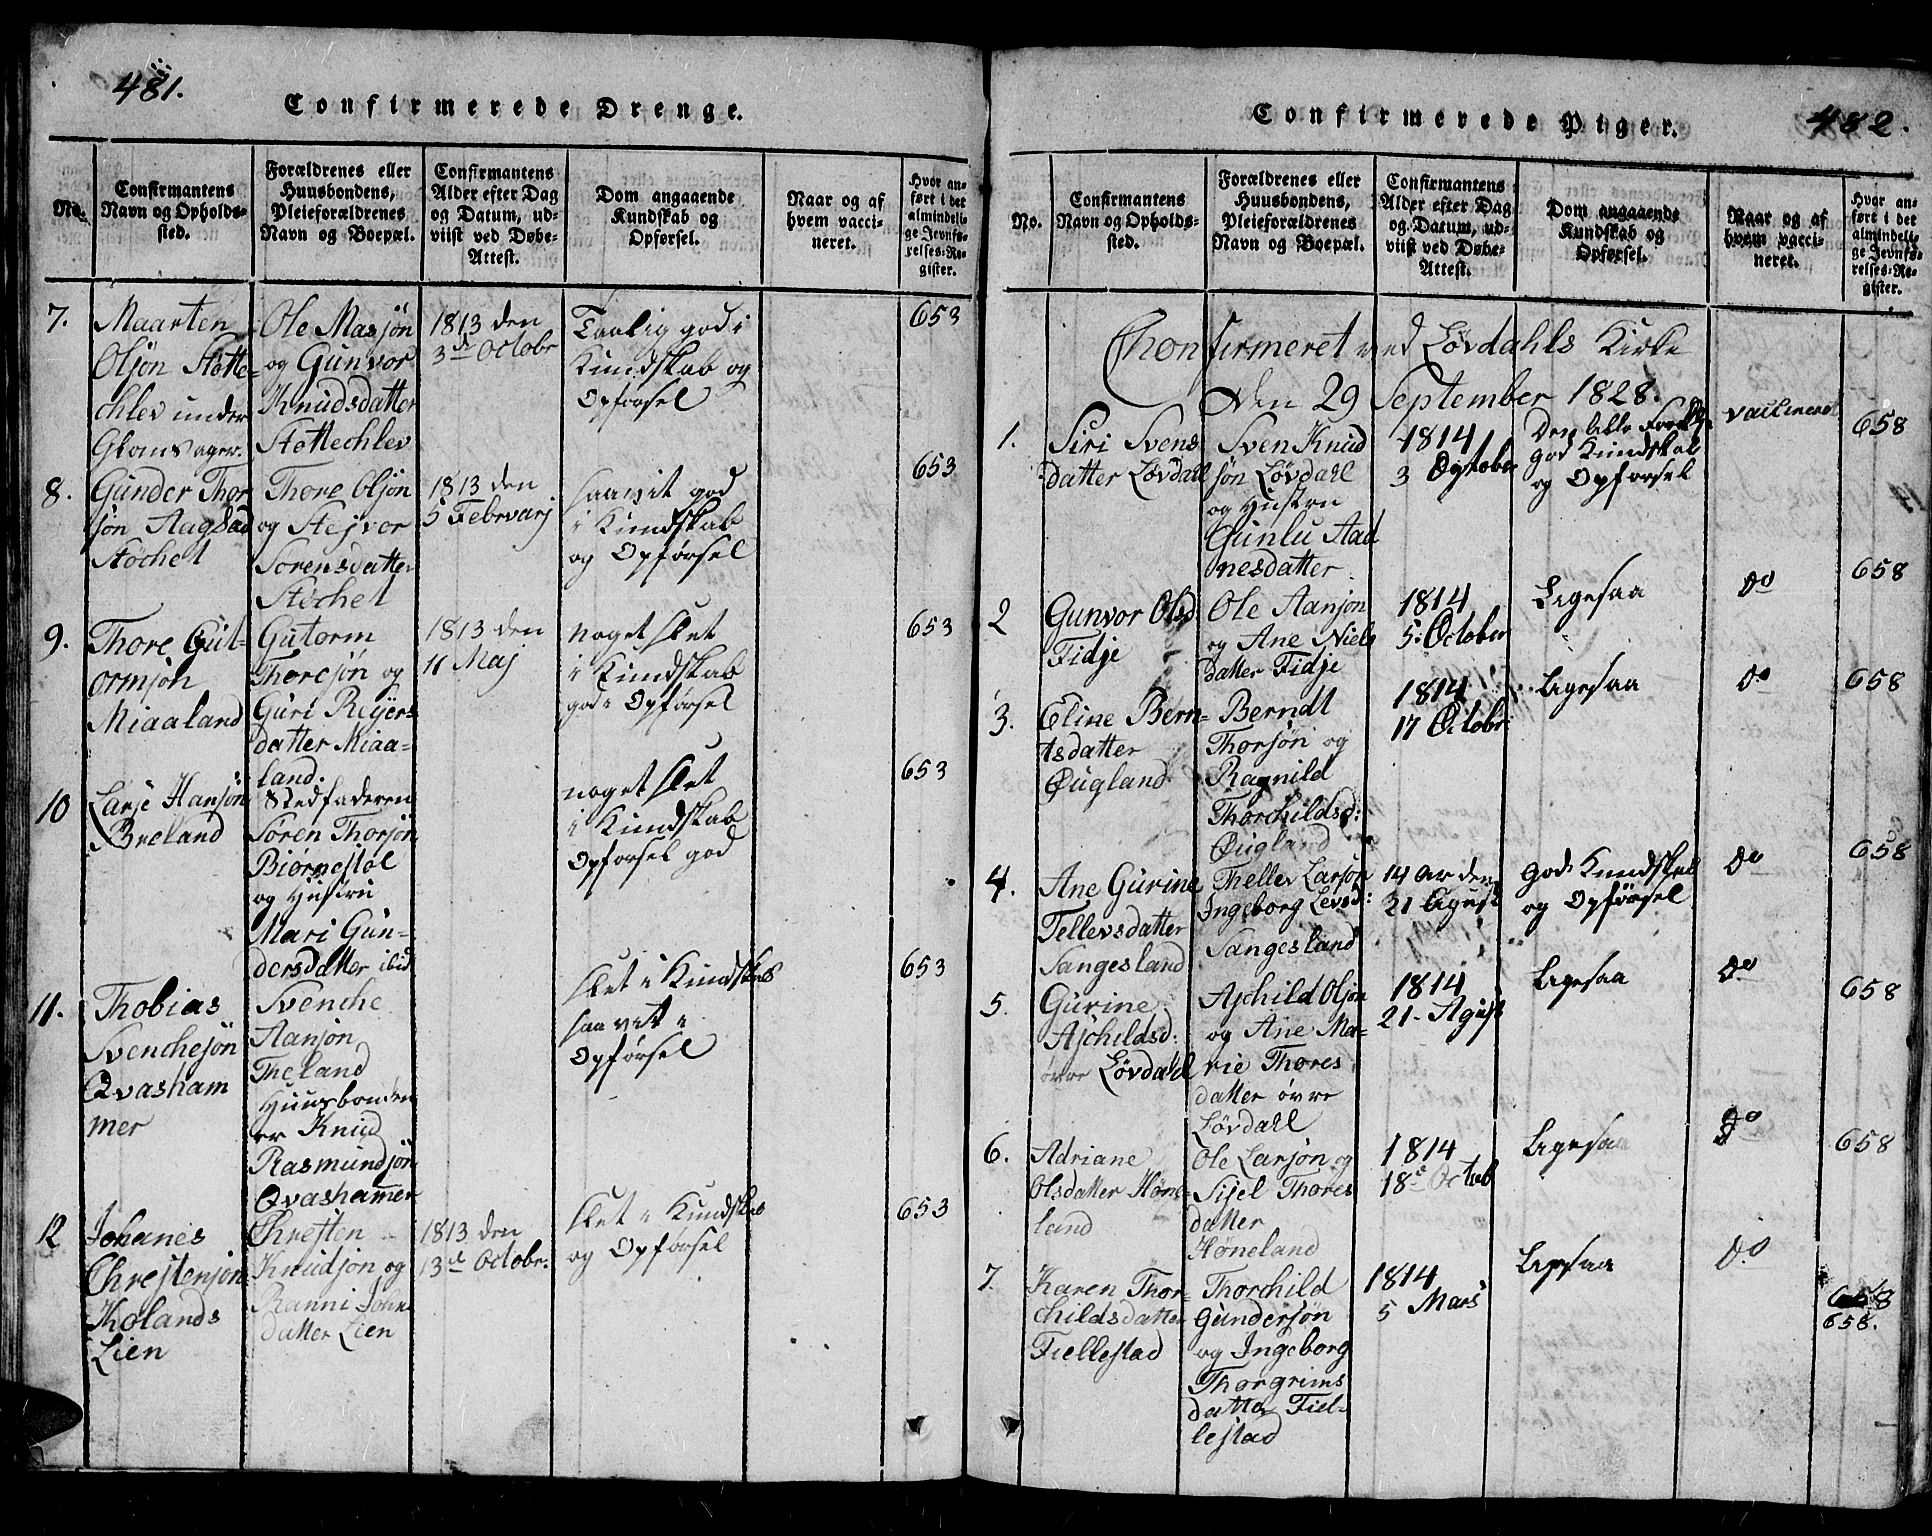 481.
Confirmerede Drenge.
No.
Confirmantens
Navn og Opholds-
sted.
Forældrenes eller
Huusbondens,
Pleieforældrenes
Navn og Boepæl.
Confirmantens
Alder efter Dag
og Datum, ud-
viist ved Døbe-
Attest.
Dom angaaende
Kundskab og
Opførsel.
Naar og af
hvem vacci-
neret.
Hvor an-
ført i det
almindeli-
ge Jevnfø-
relses-Re-
gister.
7.
Maarten
Olsøn Støtte-
chlev under
Glamsager.
Ole Masjøn
og Gunvor
Knudsdatter
Støttechlev
1813 den
3d Octobr
Taalig god i
Kundskab og
Opførsel
653
8.
Gunder Thor
søn Aagsad
Stochet
Thore Olsøn
og Stejvor
Sørensdatter
Støchet
1813 den
5 Febrvarj
saavit god
i Kundskab
og Opførsel
653
9.
Thore Gut-
ormsøn
Miaaland
Gutorm
Thoresøn og
Guri Reÿers
datter Miaa-
land.
1813 den
11 Maj
noget slet
i Kundskab
god i Opførsel
653
10
Larse Hansøn
Breland
Stedfaderen
Søren Thorsøn
Biørnestøl
og Hustru
Mari Gun-
dersdatter ibid
noget slet
i Kundskab
Opførsel god
653
11.
Thobias
Svenchesøn
Qvasham
mer
Svenche
Aanjøn
Theland
Huusbonden
er Knud
Rasmundsøn
Qvashamer
slet i Kundskab
saa vit i
Opførsel
653
12
Johanes
Chrestensøn
Holands
Lien
Chresten
Knudsøn og
Ranni Johns
datter Lien
1813 den
13d Octobr.
slet i Kundskab
og Opførsel
653
482.
Confirmerede Piger.
No.
Confirmantens
Navn og Opholds-
sted.
Forældrenes eller
Huusbondens,
Pleieforældrenes
Navn og Boepæl.
Confirmantens
Alder efter Dag
og Datum, ud-
viist ved Døbe-
Attest.
Dom angaaende
Kundskab og
Opførsel.
Naar og af
hvem vacci-
neret.
Hvor an-
ført i det
almindeli-
ge Jevnfø-
relses-Re-
gister.
Chonfirmeret ved Løvdahls Kirke
Den 29 September 1828.
1.
Siri Svens
datter Løvdahl
Sven Knud
søn Løvdahl
og Hustru
Gunlu Aad
nesdatter
1814
3 October
god Kundskab
og Opførsel
vaccineret
658
2
Gunvor Olsd
Fidje
Ole Aanjøn
og Ane Niels
datter Fidje
1814
5. October
Ligesaa
Do
658
3.
Eline Bern-
tsdatter
Øugland
Berndt
Thorsøn og
Ragnild
Thorchildsd:
Øugland
1814
17 Octobr
Ligesaa
Do
658
4.
Ane Gurine
Tellevsdatter
Sangesland
Thellev Larsøn
Ingeborg Levsd:
Sangesland
14 Ar den
21 Agust
god Kundskab
og Opførsel
Do
658
5.
Gurine
Ajchildsd:
øvre Løvdahl
Ajchild Olsøn
og Ane Ma-
rie Thores
datter øvre
Løvdahl
1814
21- Agust
Ligesaa
Do
658
6.
Adriane
Olsdatter Høne-
land
Ole Larsøn og
Sijel Thores
datter
Høneland
1814
18d Octob
Ligesaa
Do
658
7.
Karen Thor-
childsdatter
Fiellestad
Thorchild
Gundersøn
og Ingeborg
Thorgrims
datter Fiel-
lestad
1814
5 Mars
Ligesaa
Do
658
658.